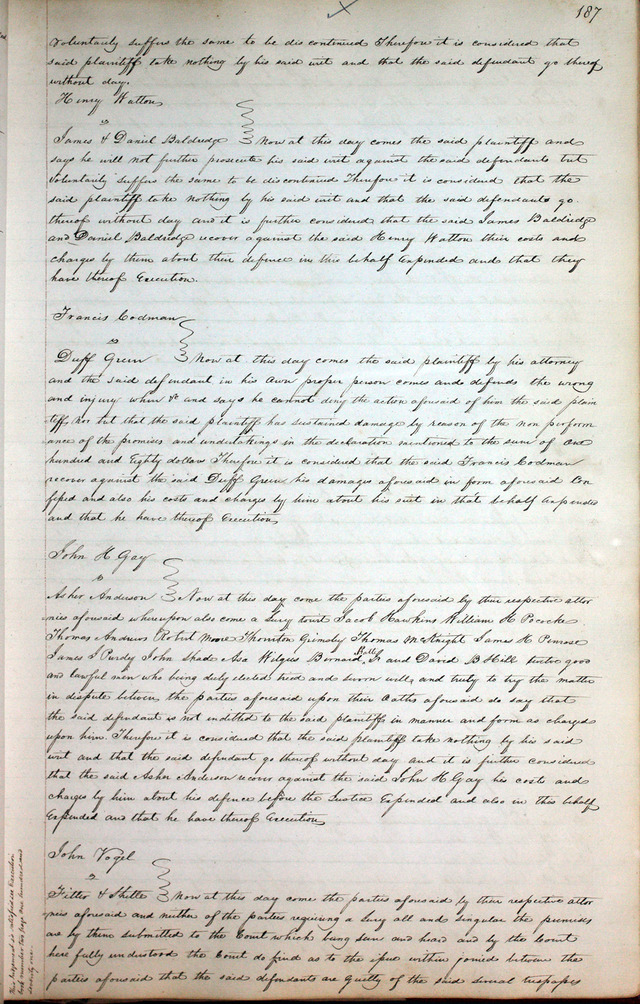 187
voluntarily suffers the same to be discontinued Therefore it is considered that
said plaintiff take nothing by his said writ and that the said defendant go thereof
without day.
Henry Hatton
vs
James & Daniel Baldredge Now at this day comes the said plaintiff and
says he will not further prosecute his said writ against the said defendants but
voluntarily suffers the same to be discontinued Therefore it is considered that the
said plaintiff take nothing by his said writ and that the said defendants go
thereof without day and it is further considered that the said James Baldredge
and Daniel Baldredge recover against the said Henry Hatton their costs and
charges by them about their defence in this behalf Expended and that they
have thereof Execution.
Francis Codman
vs
Duff Green Now at this day comes the said plaintiff by his attorney
and the said defendant in his own proper person comes and defends the wrong
and injury when &c and says he cannot deny the action aforesaid of him the said plain
tiff, Nor but that the said plaintiff has sustained damage by reason of the non perform
ance of the promises and undertakings in the declaration mentioned to the sum of one
hundred and Eighty dollars Therefore it is considered that the said Francis Codman
recover against the said Duff Green his damages aforesaid in form aforesaid Con
fessed and also his costs and charges by him about his suit in that behalf Expended
and that he have thereof Execution
John H Gay
vs
Asher Anderson Now at this day come the parties aforesaid by their respective attor
nies aforesaid whereupon also come a Jury towit Jacob Hawkins William H Pococke
Thomas Andrews Robert Moore Thornton Grimsby Thomas McKnight James H Penrose
James S Purdy John Shade Asa Wilgus Bernard Jr and David B Hill twelve good
and lawful men who being duly elected tried and sworn well and truly to try the matter
in dispute between the parties aforesaid upon their Oaths aforesaid do say that
the said defendant is not indebted to the said plaintiff in manner and form as charged
upon him. Therefore it is considered that the said plaintiff take nothing by his said
writ and that the said defendant go thereof without day and it is further considered
that the said Asher Anderson recover against the said John H Gay his costs and
charges by him about his defence before the Justice Expended and also in this behalf
Expended and that he have thereof Execution
John Vogel
vs
Titter & Shitte Now at this day come the parties aforesaid by their respective attor
nies aforesaid and neither of the parties requiring a Jury all and singular the premises
are by them submitted to the Court which being seen and heard and by the Court
here fully understood the Court do find as to the issue within joined between the
parties aforesaid that the said defendants are guilty of the said several trespasses
This Judgment is satisfied see Execution
book number two page one hundred and
seventy one.